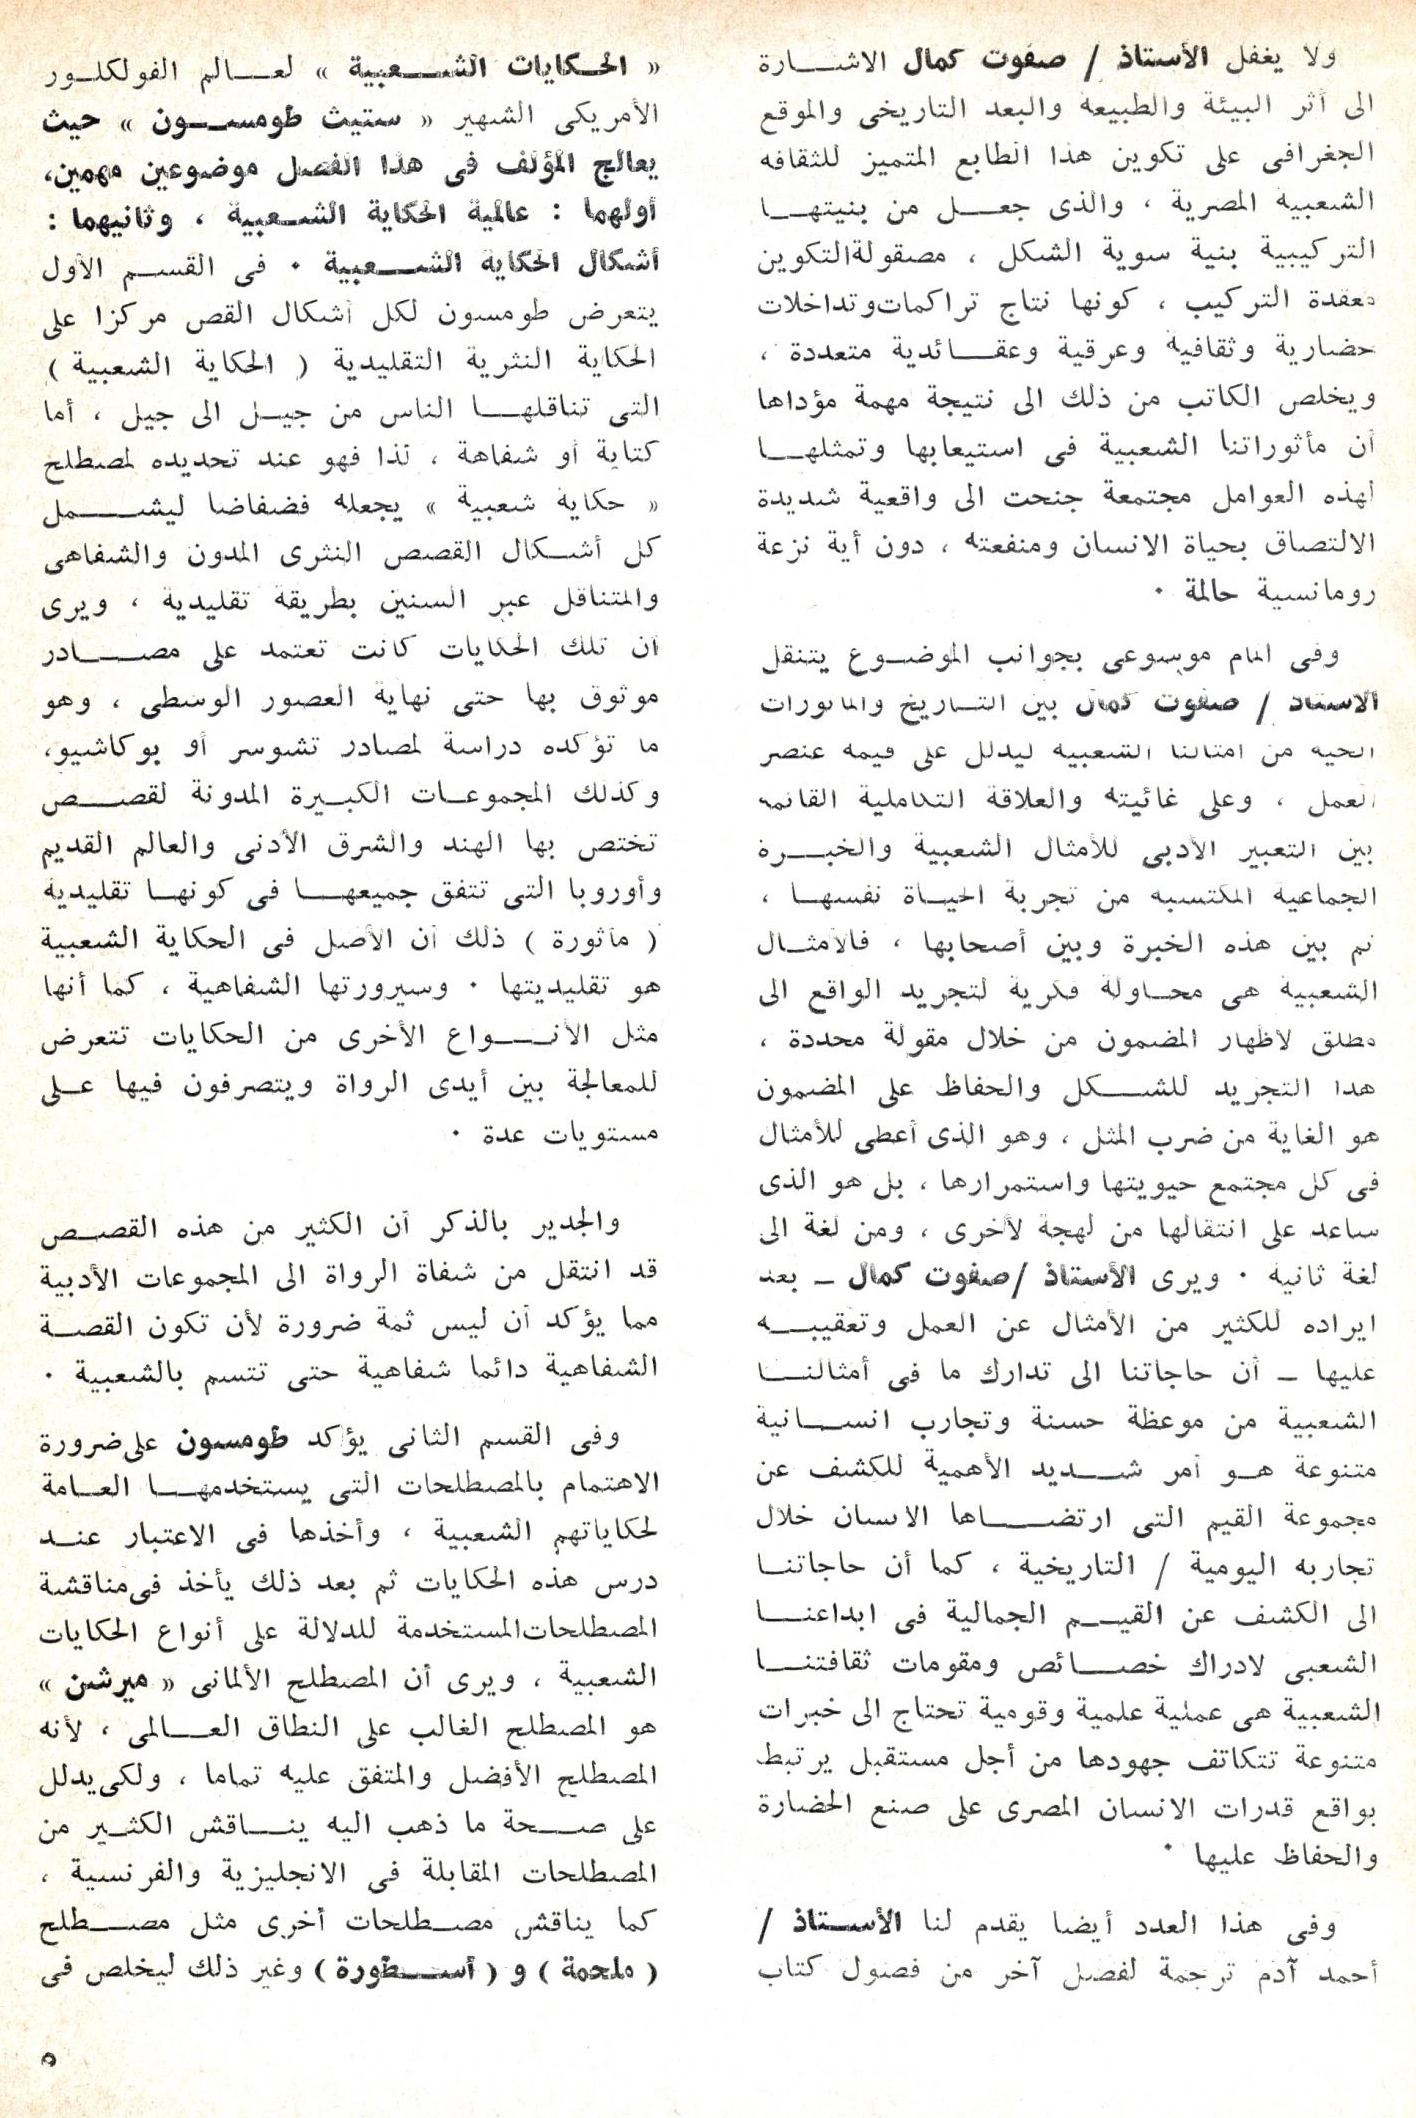 ولا يغفل الأستاذ / صفوت كمال الاشـــارة
الى أثر البيئة والطبيعة والبعد التاريخى والموقع
الجغرافى على تكوين هذا الطابع المتميز للثقافه
الشعبية المصرية ، والذى جعـــل من بنيتهـــا
التركيبية بنية سوية الشكل ، مصقولةالتكوين
معقدة التركيب ، كونها نتاج تراكمات وتداخلات
حضارية وثقافية وعرقية وعقـــائدية متعددة ،
ويخلص الكاتب من ذلك الى نتيجة مهمة مؤداها
أن مأثوراتنا الشعبية فى استيعابها وتمثلهـــا
لهذه العوامل مجتمعة جنحت الى واقعية شديدة
الالتصاق بحياة الانسان ومنفعته ، دون أية نزعة
رومانسية حالمة ٠
وفى المام موسوعى بجوانب الموضـوع يتنقل
الاستاذ / صفوت كمال بين التـاريخ والمأثورات
الحية من امثالنا الشعبية ليدلل على قيمة عنصر
العمل ، وعلى غائيته والعلاقة التكاملية القائمة
بين التعبير الأدبى للأمثال الشعبية والخبـــرة
الجماعية المكتسبه من تجربة الحيـاة نفسهـا ،
ثم بين هذه الخبرة وبين أصحابها ، فالأمثـــال
الشعبية هى محـاولة فكرية لتجريد الواقع الى
مطلق لاظهار المضمون من خلال مقولة محددة ،
هذا التجريد للشـــكل والحفاظ على المضمون
هو الغاية من ضرب المثل ، وهو الذى أعطى للأمثال
فى كل مجتمع حيويتها واستمرارها ، بل هو الذى
ساعد على انتقالها من لهجة لأخرى ، ومن لغة الى
لغة ثانية ٠ ويرى الأستاذ /صفوت كمال ـ بعد
ايراده للكثير من الأمثال عن العمل وتعقيبـــه
عليها ـ أن حاجاتنا الى تدارك ما فى أمثالنـــا
الشعبية من موعظة حسنة وتجارب انســـانية
متنوعة هـــو أمر شـــديد الأهمية للكشف عن
مجموعة القيم التى ارتضـــاها الانسان خلال
تجاربه اليومية / التاريخية ، كما أن حاجاتنـــا
الى الكشف عن القيـــم الجمالية فى ابداعنـــا
الشعبى لادراك خصـــائص ومقومات ثقافتنـــا
الشعبية هى عملية علمية وقومية تحتاج الى خبرات
متنوعة تتكاتف جهودها من أجل مستقبل يرتبط
بواقع قدرات الانسان المصرى على صنع الحضارة
والحفاظ عليها ٠
وفى هذا العدد أيضا يقدم لنا الأســـتاذ /
أحمد آدم ترجمة لفصل آخر من فصول كتاب
« الحـكايات الشـــعبية » لعـــالم الفولكلـور
الأمريكى الشهير « ستيث طومســـون » حيث
يعالج المؤلف فى هذا الفصل موضوعين مهمين،
أولهما : عالمية الحكاية الشـــعبية ، وثانيهما :
أشكال الحكاية الشـــعبية ٠ فى القســم الأول
يتعرض طومسون لكل أشكال القص مركزا على
الحكاية النثرية التقليدية ( الحكاية الشعبية )
التى تناقلهـــا الناس من جيـل الى جيل ، أما
كتابة أو شفاهة ، لذا فهو عند تحديده لمصطلح
« حكاية شعبية » يجعله فضفاضا ليشـــمل
كل أشـــكال القصص النثرى المدون والشفاهى
والمتناقل عبر السنين بطريقة تقليدية ، ويرى
أن تلك الحكايات كانت تعتمد على مصـــادر
موثوق بها حتى نهاية العصور الوسطى ، وهو
ما تؤكده دراسة لمصادر تشوسر أو بوكاشيو،
وكذلك المجموعـات الكبـيرة المدونة لقصـــص
تختص بها الهند والشرق الأدنى والعالم القديم
وأوروبا التى تتفق جميعهـــا فى كونهـا تقليدية
( مأثورة ) ذلك أن الأصل فى الحكاية الشعبية
هو تقليديتها ٠ وسيرورتها الشفاهية ، كما أنها
مثل الأنـــواع الأخرى من الحكايات تتعرض
للمعالجة بين أيدى الرواة ويتصرفون فيها عـلى
مستويات عدة ٠
والجدير بالذكر أن الكثير من هذه القصـص
قد انتقل من شفاة الرواة الى المجموعات الأدبية
مما يؤكد أن ليس ثمة ضرورة لأن تكون القصـة
الشفاهية دائما شفاهية حتى تتسم بالشعبية ٠
وفى القسم الثانى يؤكد طومسون على ضرورة
الاهتمام بالمصطلحات التى يستخدمهـــا العـامة
لحكاياتهم الشعبية ، وأخذها فى الاعتبار عنـــد
درس هذه الحكايات ثم بعد ذلك يأخذ فى مناقشة
المصطلحات المستخدمة للدلالة على أنواع الحكايات
الشعبية ، ويرى أن المصطلح الألمانى « ميرشن »
هو المصطلح الغالب على النطاق العـــالمى ، لأنه
المصطلح الأفضل والمتفق عليه تماما ، ولكى يدلل
على صـــحة ما ذهب اليه ينـــاقش الكثـير من
المصطلحات المقابلة فى الانجليزية والفرنسية ،
كما يناقش مصـطلحات أخرى مثل مصـــطلح
( ملحمة ) و ( أســـطورة ) وغير ذلك ليخلص فى
٥